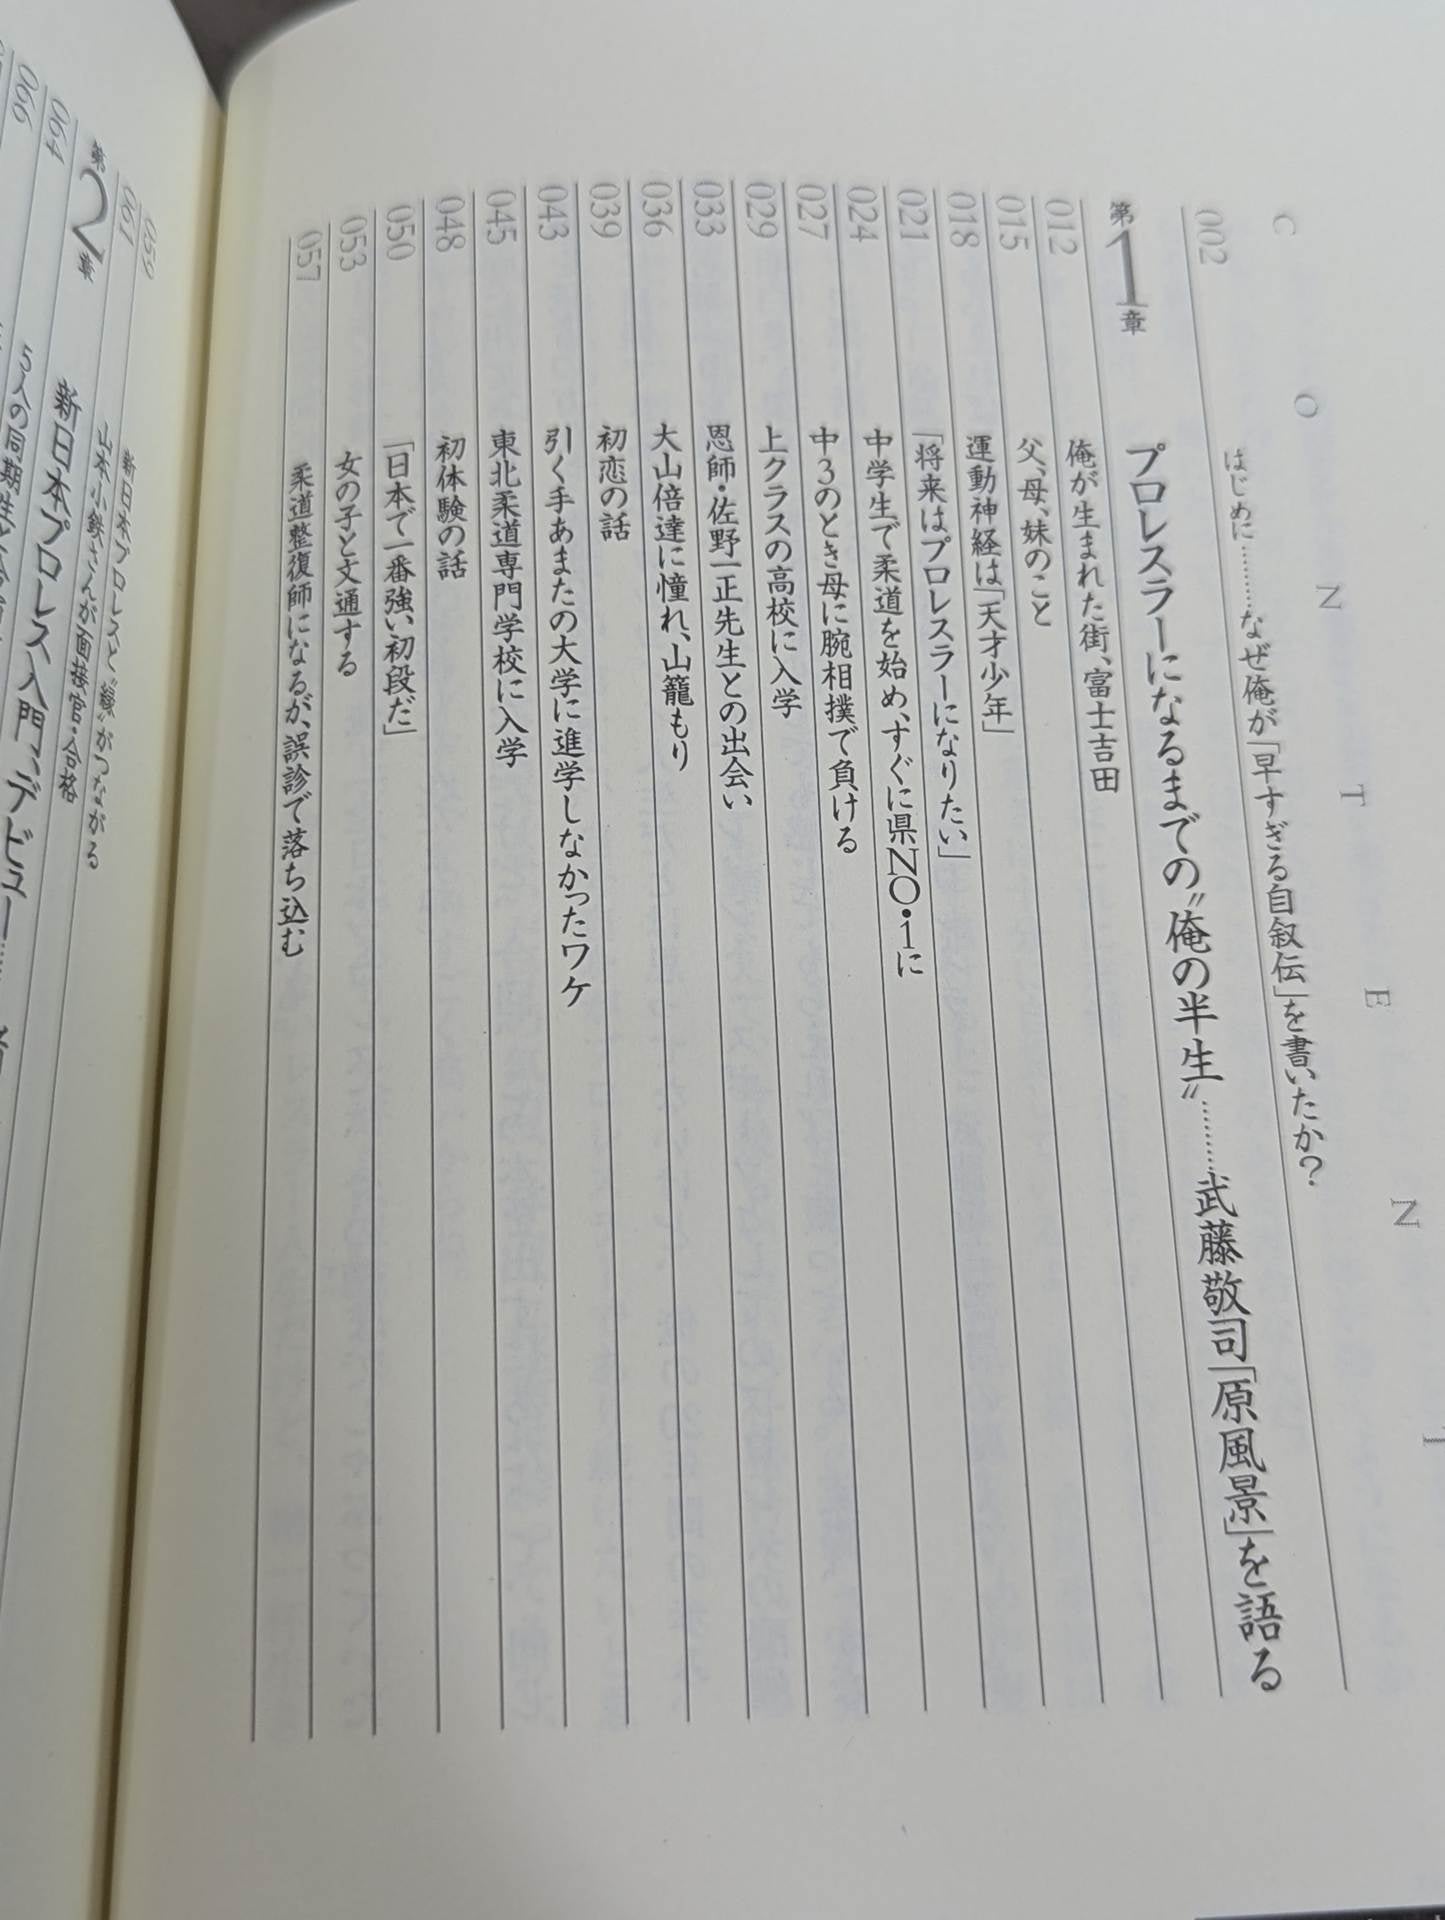 CONTENT
002 はじめに………なぜ俺が「早すぎる自叙伝」を書いたか？
第1章 プロレスラーになるまでの〝俺の半生〟………武藤敬司「原風景」を語る
012 俺が生まれた街、富士吉田
015 父、母、妹のこと
018 運動神経は「天才少年」
021 「将来はプロレスラーになりたい」
024 中学生で柔道を始め、すぐに県NO・1に
027 中3のとき母に腕相撲で負ける
029 上クラスの高校に入学
033 恩師・佐野一正先生との出会い
036 大山倍達に憧れ、山籠もり
039 初恋の話
043 引く手あまたの大学に進学しなかったワケ
045 東北柔道専門学校に入学
048 初体験の話
050 「日本で一番強い初段だ」
053 女の子と文通する
057 柔道整復師になるが、誤診で落ち込む
059 新日本プロレスと〝線〟がつながる
061 山本小鉄さんが面接官・合格
第2章 新日本プロレス入門、デビュー
064 5人の同期生
066